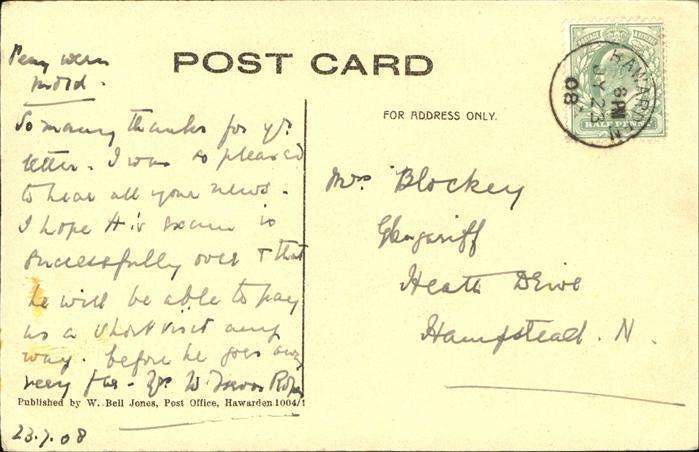 Pen y wern
Mold.
POST CARD
So many thanks for yr.
letter. I was so pleased
to hear all your news.
I hope H's exam is
successfully over & that
he will be able to pay
us a short visit any
way. before he goes away
very far. Yrs W. Trevor Roper
Published by W. Bell Jones, Post Office, Hawarden 1004/1
23.7.08
FOR ADDRESS ONLY.
Mrs Blockey
Glengariff
Heath Drive
Hampstead. N.
HAWARDEN
6 PM
JY 23
08
HALF PENNY